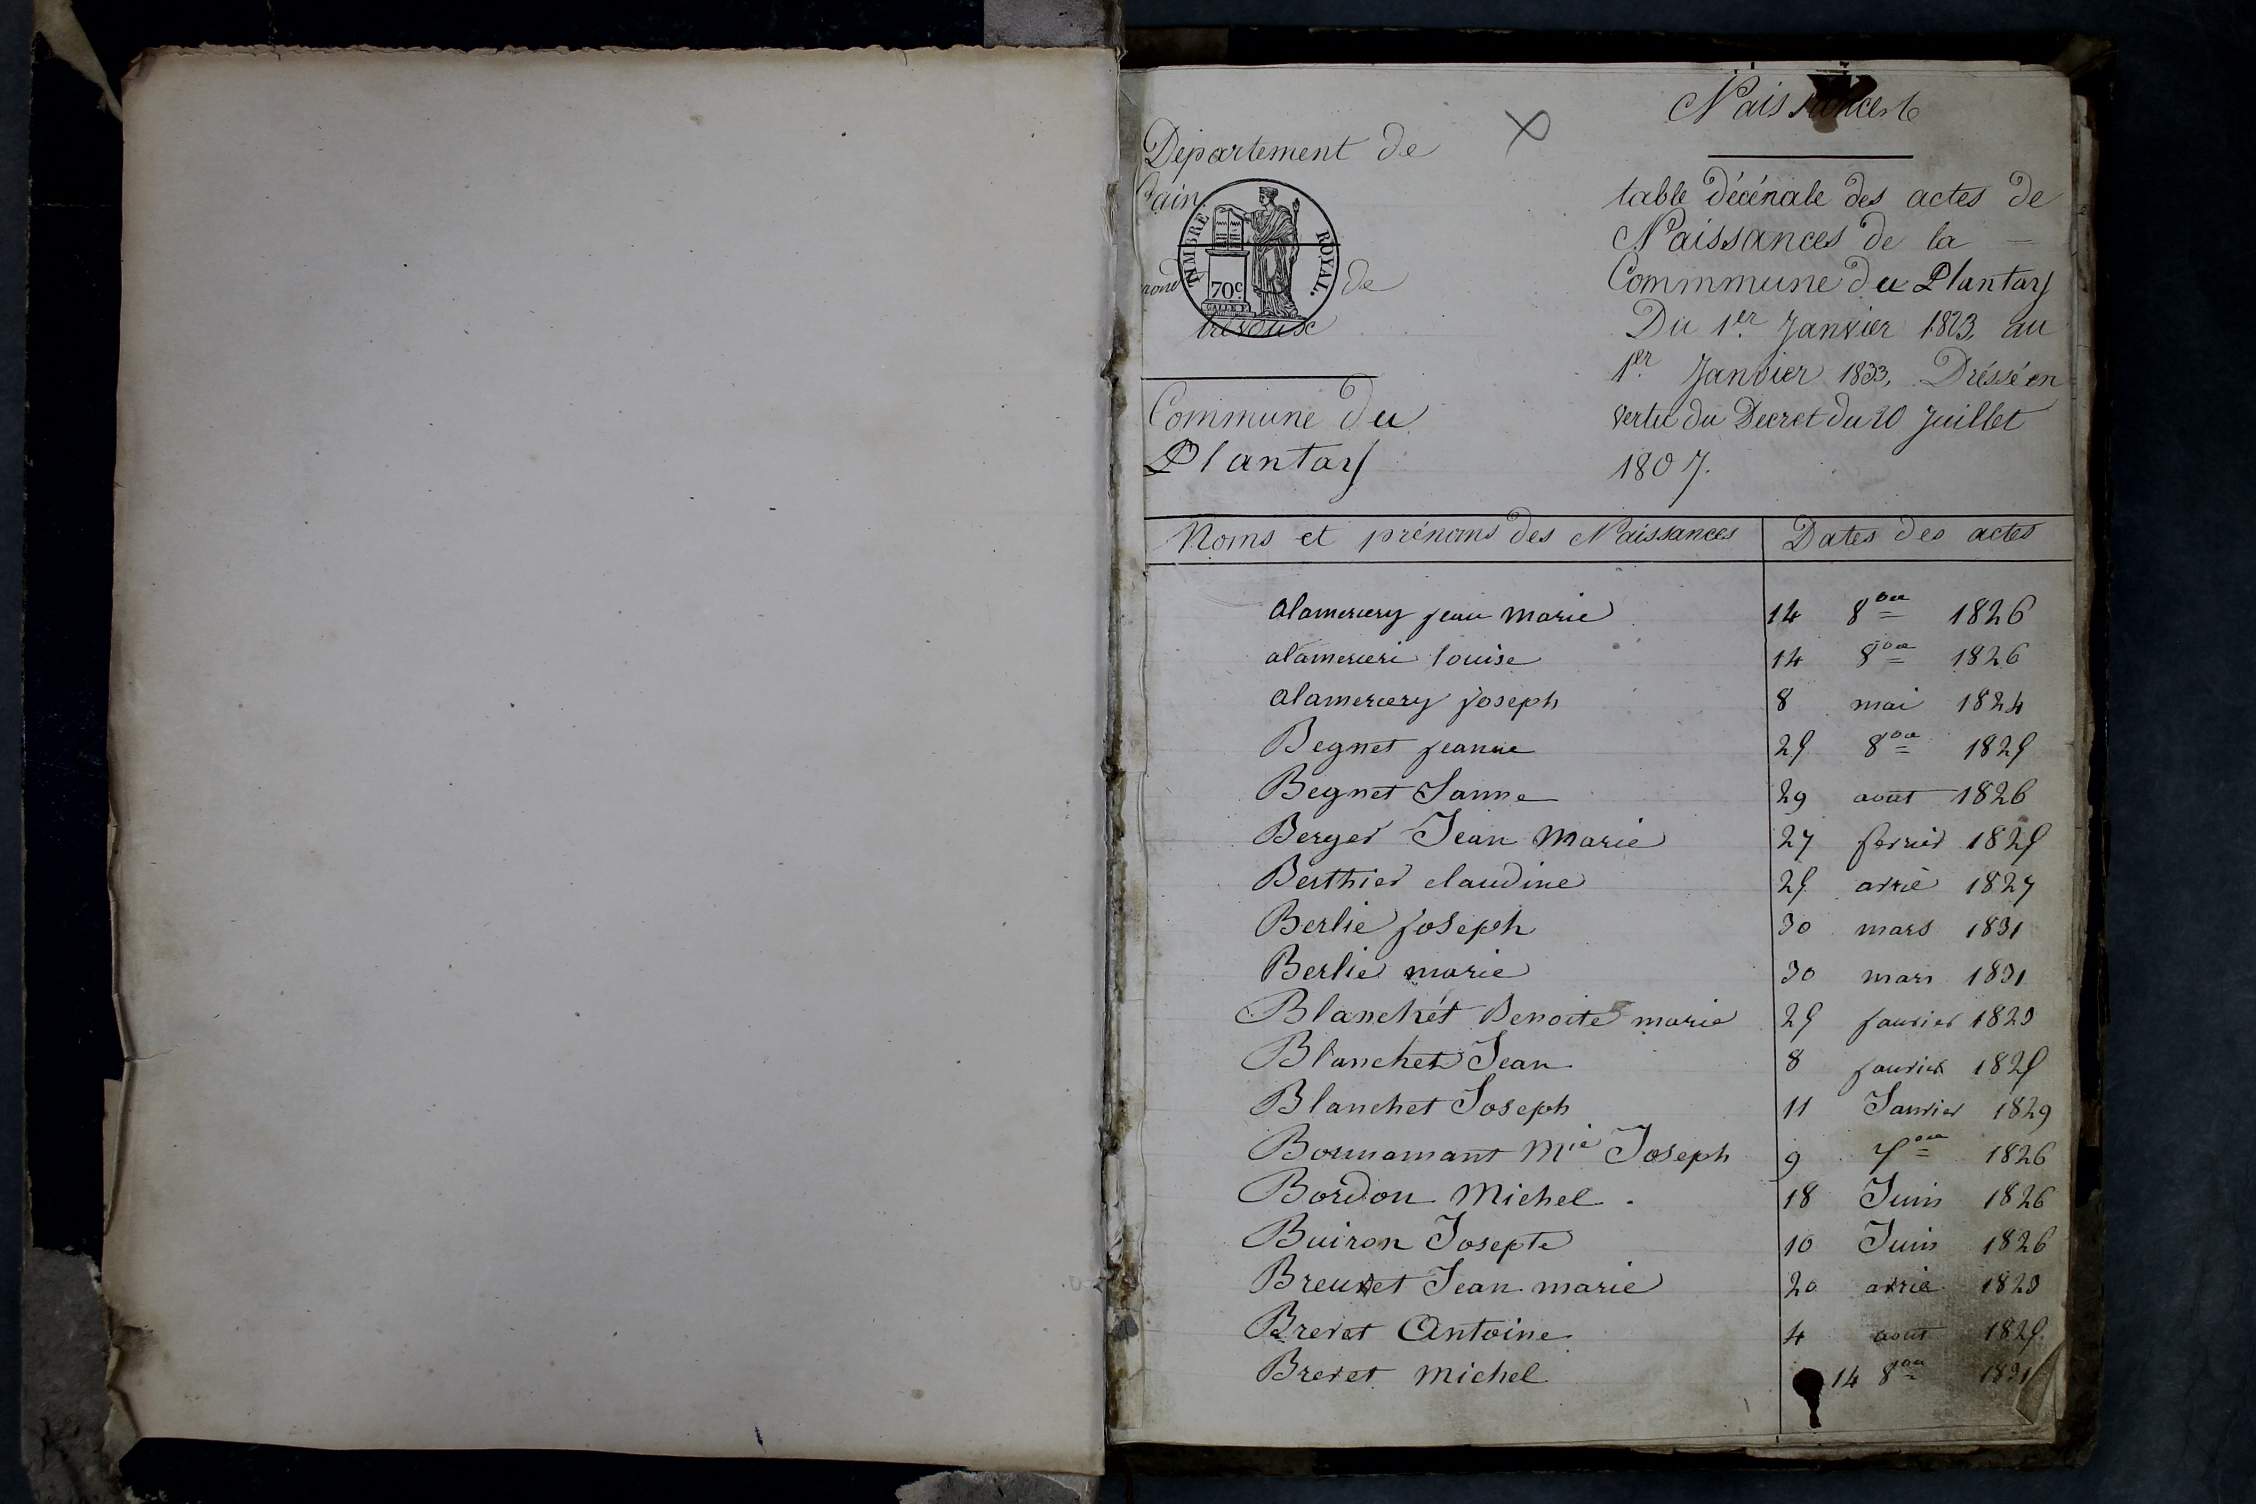 Naissances
Département de
l'ain
TIMBRE ROYAL.
70c
de
trevoux
Commune du
Plantay
table décénale des actes de
Naissances de la
Commmune du Plantay
Du 1er Janvier 1823, au
1er Janvier 1833, Dréssé en
vertu du Decret du 20 Juillet
1807.
Noms et prénoms des Naissances Dates des actes
alamercery jean marie 14 8bre 1826
alamerceri louise 14 8bre 1826
alamercery joseph 8 mai 1824
Begnet jeanne 25 8bre 1825
Begnet Janne 29 août 1826
Berger Jean Marie 27 fevrier 1825
Berthier claudine 25 avril 1827
Berlie joseph 30 mars 1831
Berlie marie 30 mars 1831
Blanchét Benoite marie 25 fauvier 1823
Blanchet Jean 8 fauvier 1825
Blanchet Joseph 11 Janvier 1829
Mie Joseph 9 7bre 1826
Bordon Michel 18 Juin 1826
Buiron Josepte 10 Juin 1826
Jean marie 20 avril 1823
Brevet Antoine 4 août 1825
Brevet Michel 14 8bre 1831